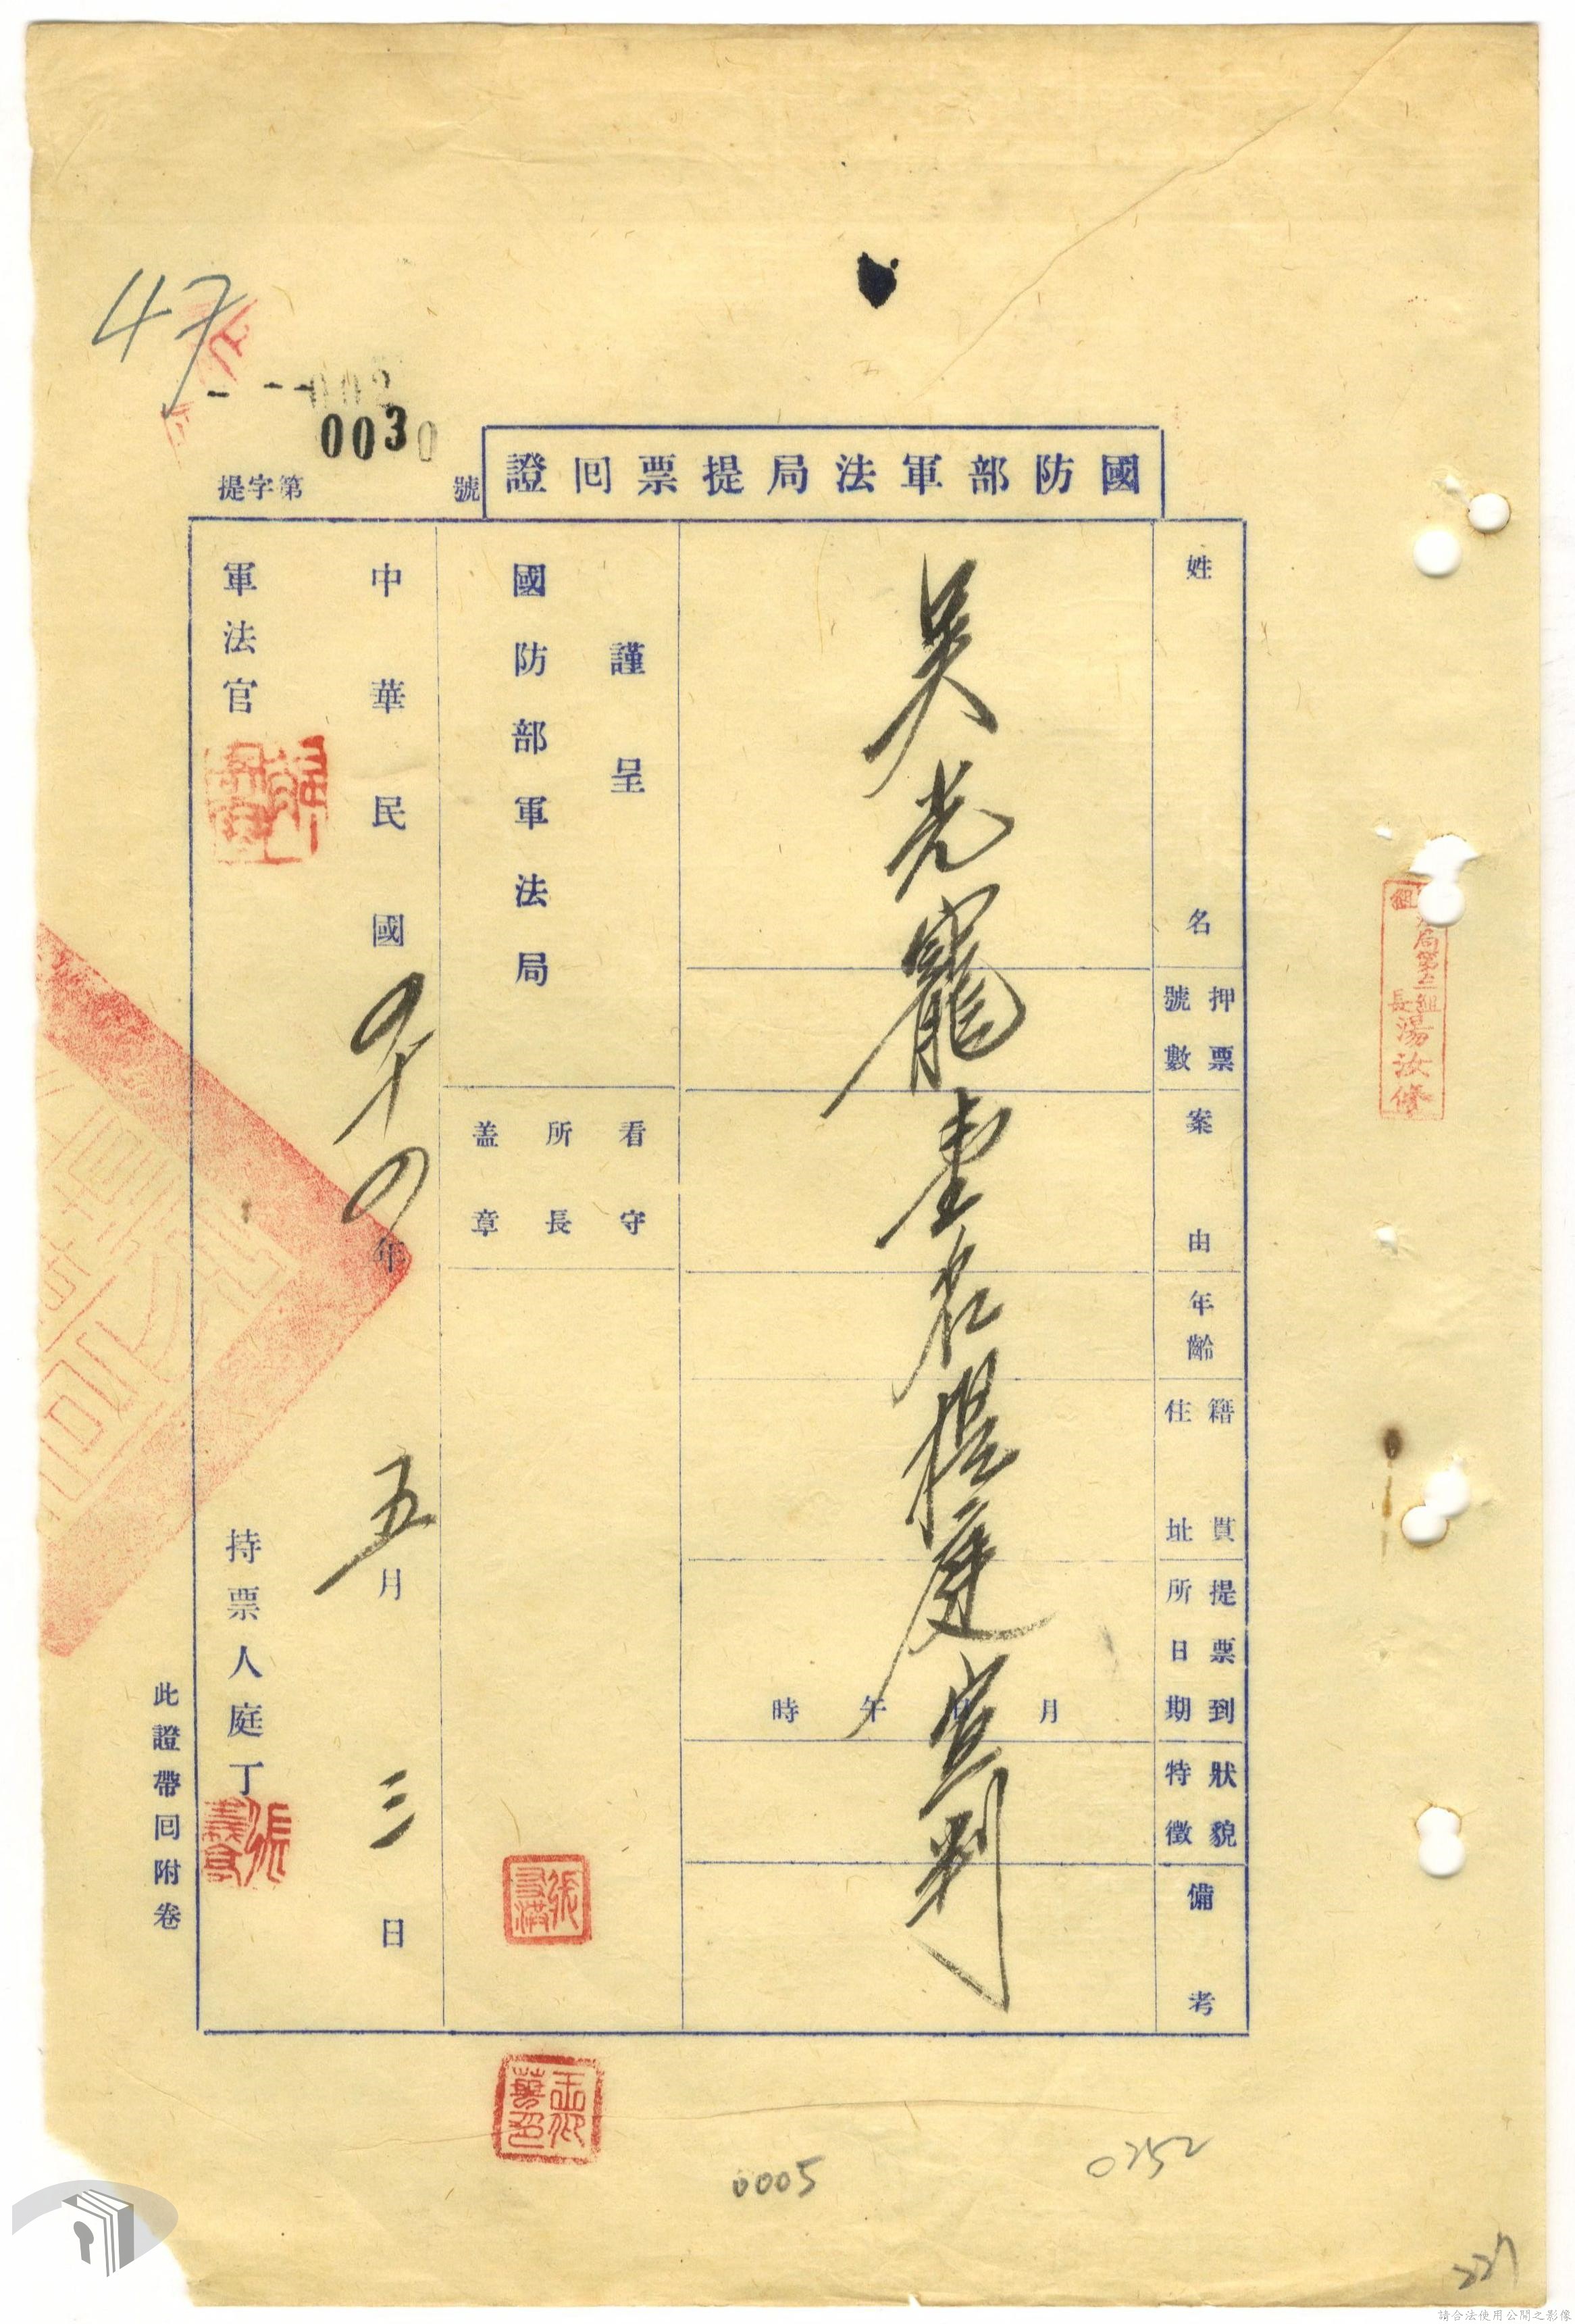 47
0030
國防部軍法局提票回證
提字第 號
姓 名
押票號數
案 由
年齡
籍貫住址
提票到所日期
狀貌特徵
備考
吳光寵壹名提庭宣判
月 日 午 時
謹呈
國防部軍法局
看守所長蓋章
中華民國四十四年五月三日
軍法官
持票人庭丁
張
此證帶回附卷
局第五組組長湯汝修
0005
0252
227
請合法使用公開之影像